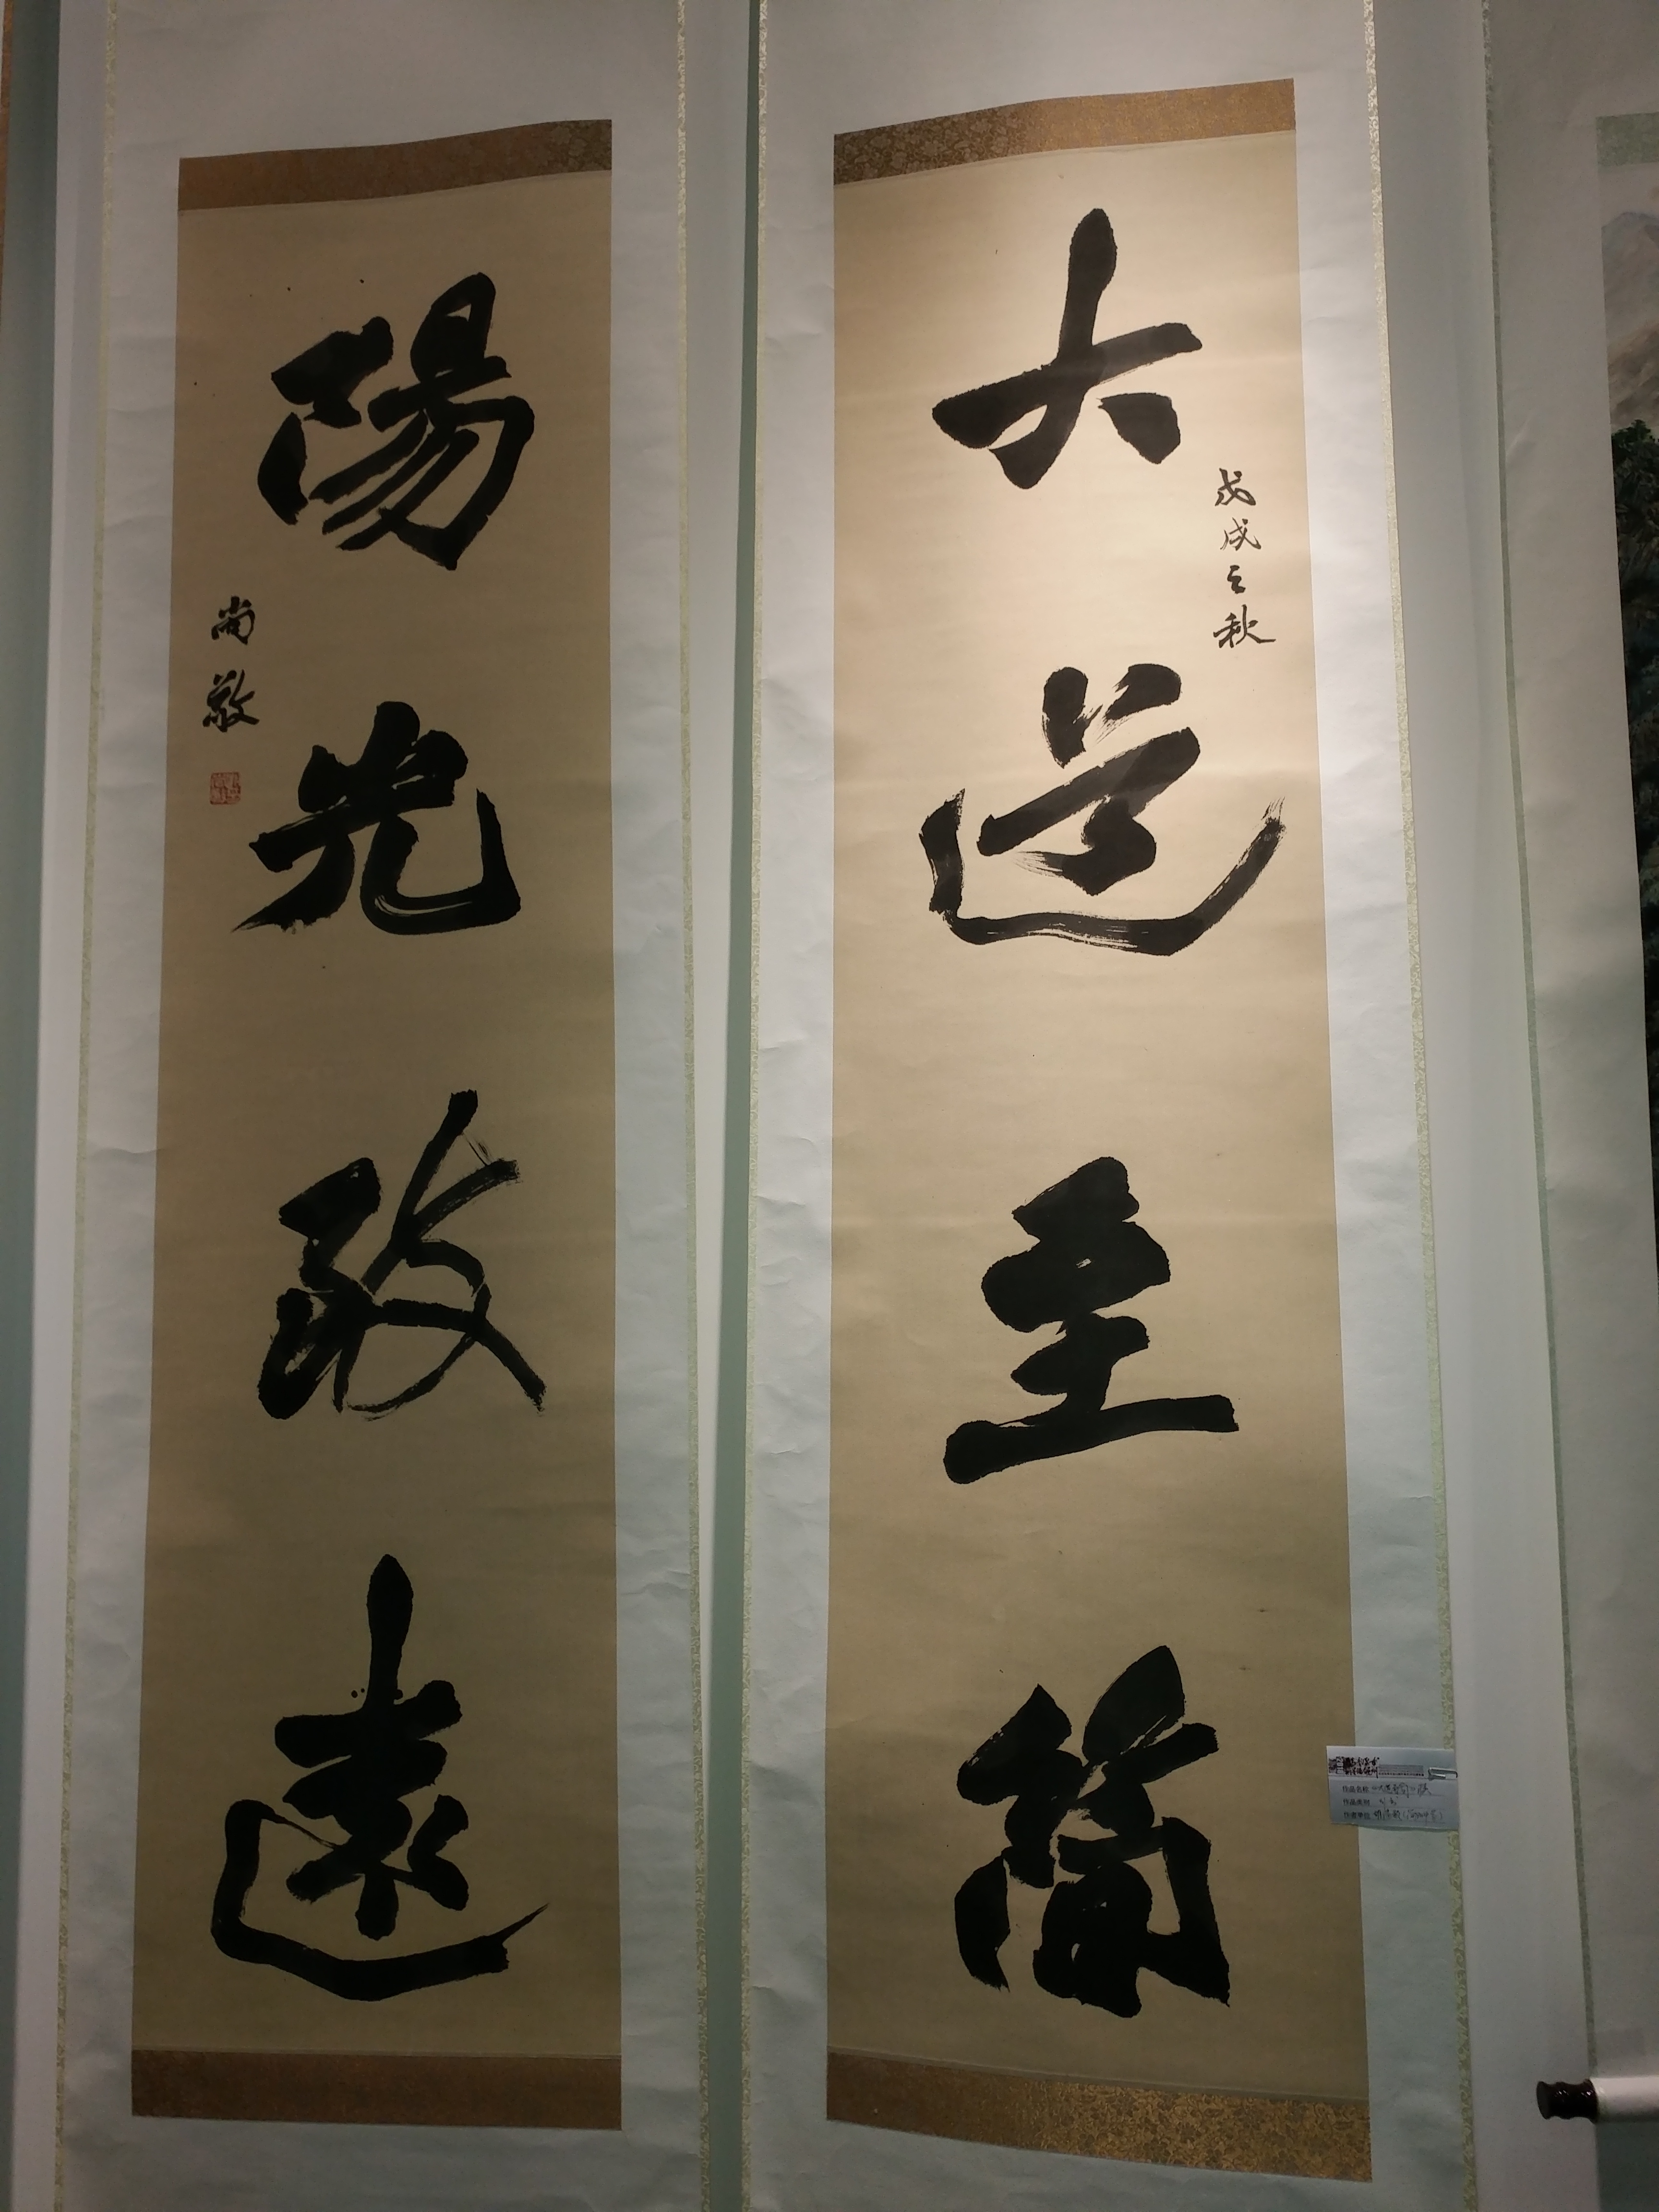 大道至简
戊戌之秋
陽光致遠
尚敬
作品名称
作品类别
作者单位